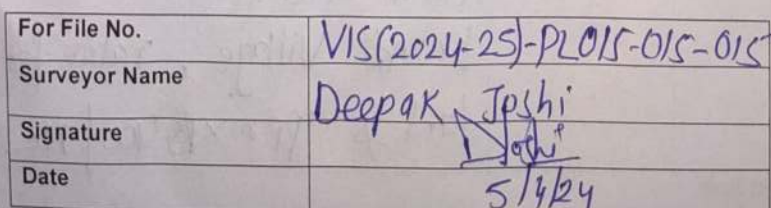 For File No. VIS(2024-25)-PL015-015-015
Surveyor Name Deepak Joshi
Signature Joshi
Date 5/4/24